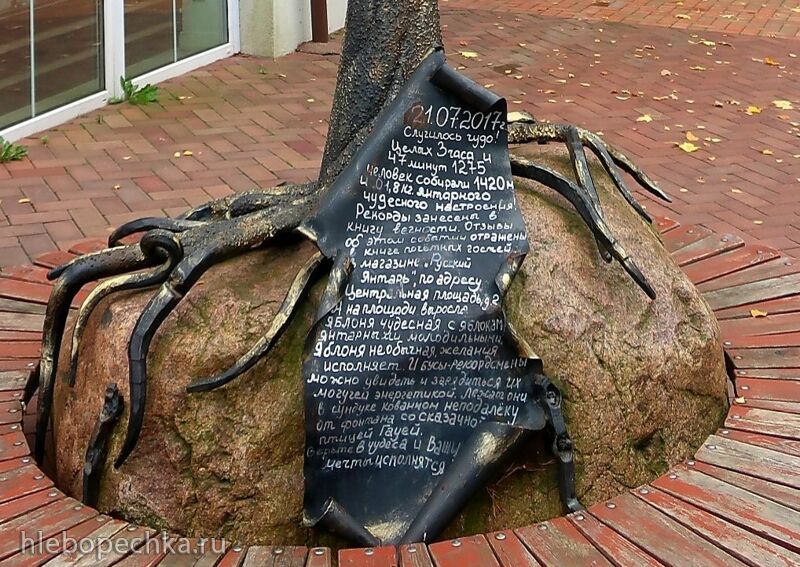 21.07.2017г
Случилось чудо!
Целых 3 часа и
47 минут 1275
человек собирали 1420м
и 01,8 кг янтарного
чудесного настроения.
Рекорды занесены в
книгу вечности. Отзывы
об этом событии отражены
книге почётных гостей
магазине "Русский
Янтарь", по адресу
Центральная площадь, д.2
И на площади выросла
яблоня чудесная с яблоками
янтарными молодильными.
Яблоня необычная, желания
исполняет. И бусы-рекордсмены
можно увидеть и зарядиться их
могучей энергетикой. Лежат они
в сундуке кованном неподалёку
от фонтана со сказачной
птицей Гауей.
Верьте в чудеса и Ваши
мечты исполнятся
hlebopechka.ru